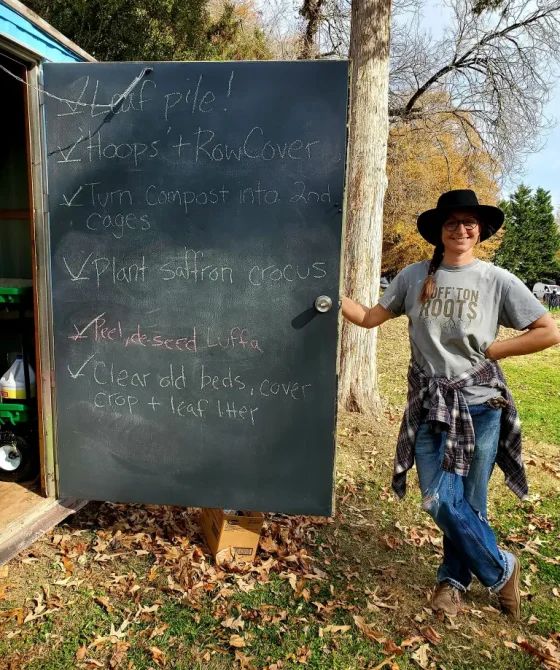 ✓ Leaf pile!
✓ Hoops + RowCover
✓ Turn Compost into 2nd
cages
✓ Plant saffron crocus
✓ Peel, de-seed Luffa
✓ Clear old beds, cover
crop + leaf litter
ROOTS